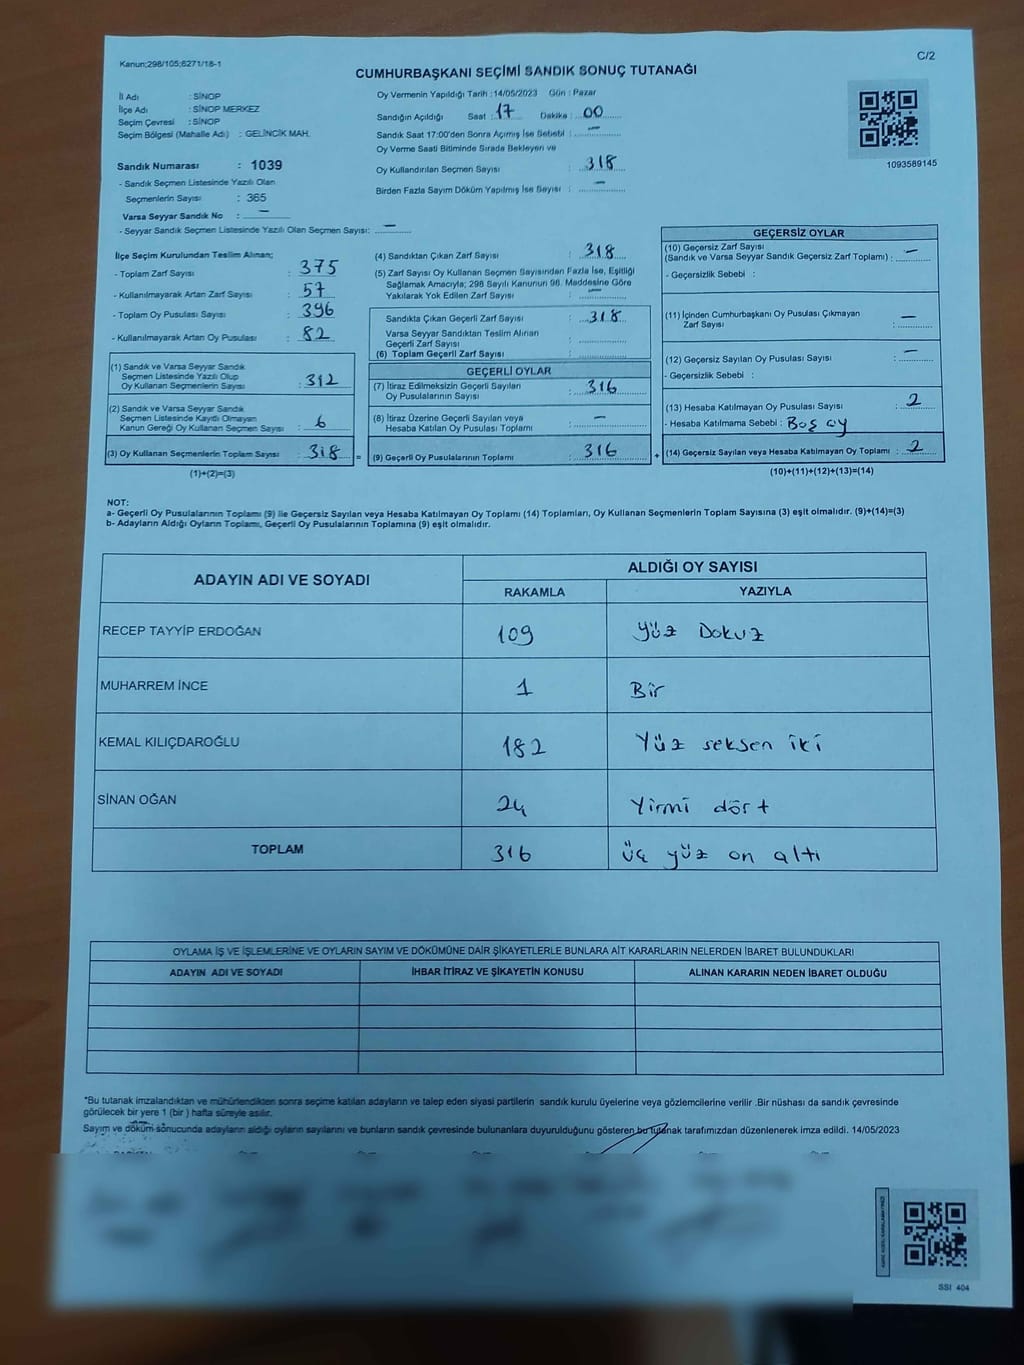 Kanun;298/105;6271/18-1
C/2
CUMHURBAŞKANI SEÇİMİ SANDIK SONUÇ TUTANAĞI
İl Adı : SİNOP
İlçe Adı : SİNOP MERKEZ
Seçim Çevresi : SİNOP
Seçim Bölgesi (Mahalle Adı) : GELİNCİK MAH.
Sandık Numarası : 1039
- Sandık Seçmen Listesinde Yazılı Olan
Seçmenlerin Sayısı : 365
Varsa Seyyar Sandık No : —
- Seyyar Sandık Seçmen Listesinde Yazılı Olan Seçmen Sayısı: —
Oy Vermenin Yapıldığı Tarih :14/05/2023 Gün : Pazar
Sandığın Açıldığı Saat : 17 Dakika : 00
Sandık Saat 17:00'den Sonra Açımış İse Sebebi : —
Oy Verme Saati Bitiminde Sırada Bekleyen ve
Oy Kullandırılan Seçmen Sayısı : 318
Birden Fazla Sayım Döküm Yapılmış İse Sayısı : —
1093589145
İlçe Seçim Kurulundan Teslim Alınan;
- Toplam Zarf Sayısı : 375
- Kullanılmayarak Artan Zarf Sayısı : 57
- Toplam Oy Pusulası Sayısı : 396
- Kullanılmayarak Artan Oy Pusulası : 82
(1) Sandık ve Varsa Seyyar Sandık
Seçmen Listesinde Yazılı Olup
Oy Kullanan Seçmenlerin Sayısı : 312
(2) Sandık ve Varsa Seyyar Sandık
Seçmen Listesinde Kayıtlı Olmayan
Kanun Gereği Oy Kullanan Seçmen Sayısı : 6
(3) Oy Kullanan Seçmenlerin Toplam Sayısı : 318
(1)+(2)=(3)
(4) Sandıktan Çıkan Zarf Sayısı : 318
(5) Zarf Sayısı Oy Kullanan Seçmen Sayısından Fazla İse, Eşitliği
Sağlamak Amacıyla; 298 Sayılı Kanunun 98. Maddesine Göre
Yakılarak Yok Edilen Zarf Sayısı : —
Sandıkta Çıkan Geçerli Zarf Sayısı : 318
Varsa Seyyar Sandıktan Teslim Alınan
Geçerli Zarf Sayısı :
(6) Toplam Geçerli Zarf Sayısı :
GEÇERLİ OYLAR
(7) İtiraz Edilmeksizin Geçerli Sayılan
Oy Pusulalarının Sayısı : 316
(8) İtiraz Üzerine Geçerli Sayılan veya
Hesaba Katılan Oy Pusulaları Toplamı : —
(9) Geçerli Oy Pusulalarının Toplamı : 316
GEÇERSİZ OYLAR
(10) Geçersiz Zarf Sayısı
(Sandık ve Varsa Seyyar Sandık Geçersiz Zarf Toplamı) : —
- Geçersizlik Sebebi :
(11) İçinden Cumhurbaşkanı Oy Pusulası Çıkmayan
Zarf Sayısı : —
(12) Geçersiz Sayılan Oy Pusulası Sayısı : —
- Geçersizlik Sebebi :
(13) Hesaba Katılmayan Oy Pusulası Sayısı : 2
- Hesaba Katılmama Sebebi : Boş oy
(14) Geçersiz Sayılan veya Hesaba Katılmayan Oy Toplamı : 2
(10)+(11)+(12)+(13)=(14)
NOT:
a- Geçerli Oy Pusulalarının Toplamı (9) ile Geçersiz Sayılan veya Hesaba Katılmayan Oy Toplamı (14) Toplamları, Oy Kullanan Seçmenlerin Toplam Sayısına (3) eşit olmalıdır. (9)+(14)=(3)
b- Adayların Aldığı Oyların Toplamı, Geçerli Oy Pusulalarının Toplamına (9) eşit olmalıdır.
ADAYIN ADI VE SOYADI
ALDIĞI OY SAYISI
RAKAMLA YAZIYLA
RECEP TAYYİP ERDOĞAN 109 Yüz Dokuz
MUHARREM İNCE 1 Bir
KEMAL KILIÇDAROĞLU 182 Yüz seksen iki
SİNAN OĞAN 24 Yirmi dört
TOPLAM 316 üç yüz on altı
OYLAMA İŞ VE İŞLEMLERİNE VE OYLARIN SAYIM VE DÖKÜMÜNE DAİR ŞİKAYETLERLE BUNLARA AİT KARARLARIN NELERDEN İBARET BULUNDUKLARI
ADAYIN ADI VE SOYADI İHBAR İTİRAZ VE ŞİKAYETİN KONUSU ALINAN KARARIN NEDEN İBARET OLDUĞU
"Bu tutanak imzalandıktan ve mühürlendikten sonra seçime katılan adayların ve talep eden siyasi partilerin sandık kurulu üyelerine veya gözlemcilerine verilir .Bir nüshası da sandık çevresinde
görülecek bir yere 1 (bir ) hafta süreyle asılır.
Sayım ve döküm sonucunda adayların aldığı oyların sayılarını ve bunların sandık çevresinde bulunanlara duyurulduğunu gösteren bu tutanak tarafımızdan düzenlenerek imza edildi. 14/05/2023
SSI 404